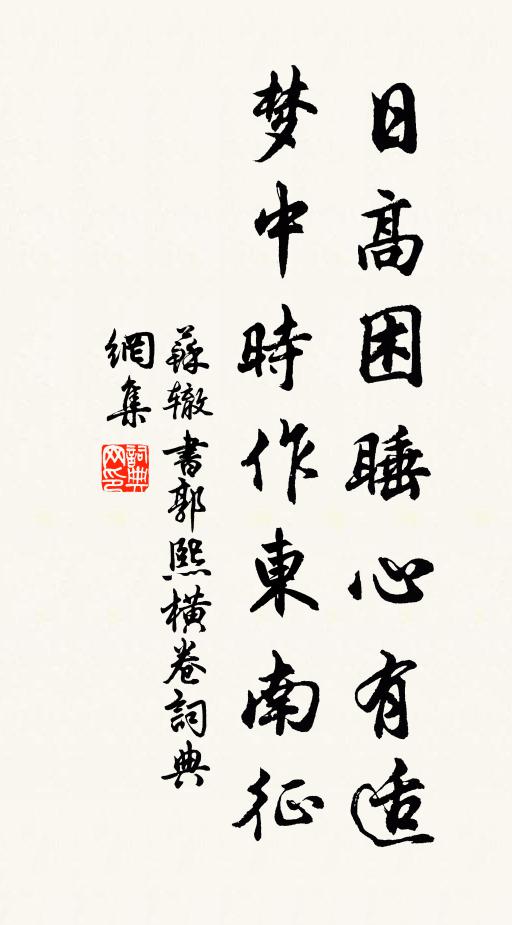 日高困睡心有适
梦中時作東南征
蘇辙書郭熙橫卷詞典
網集
詞典
网印